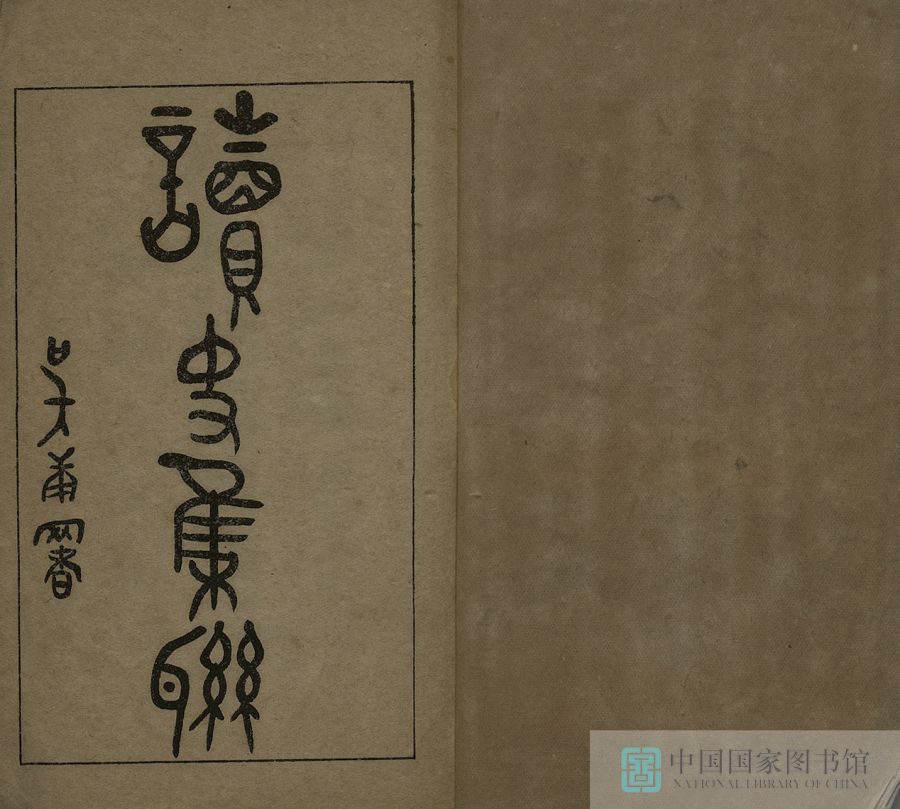 讀史集聯
吳莆署
中国国家图书馆
NATIONAL LIBRARY OF CHINA